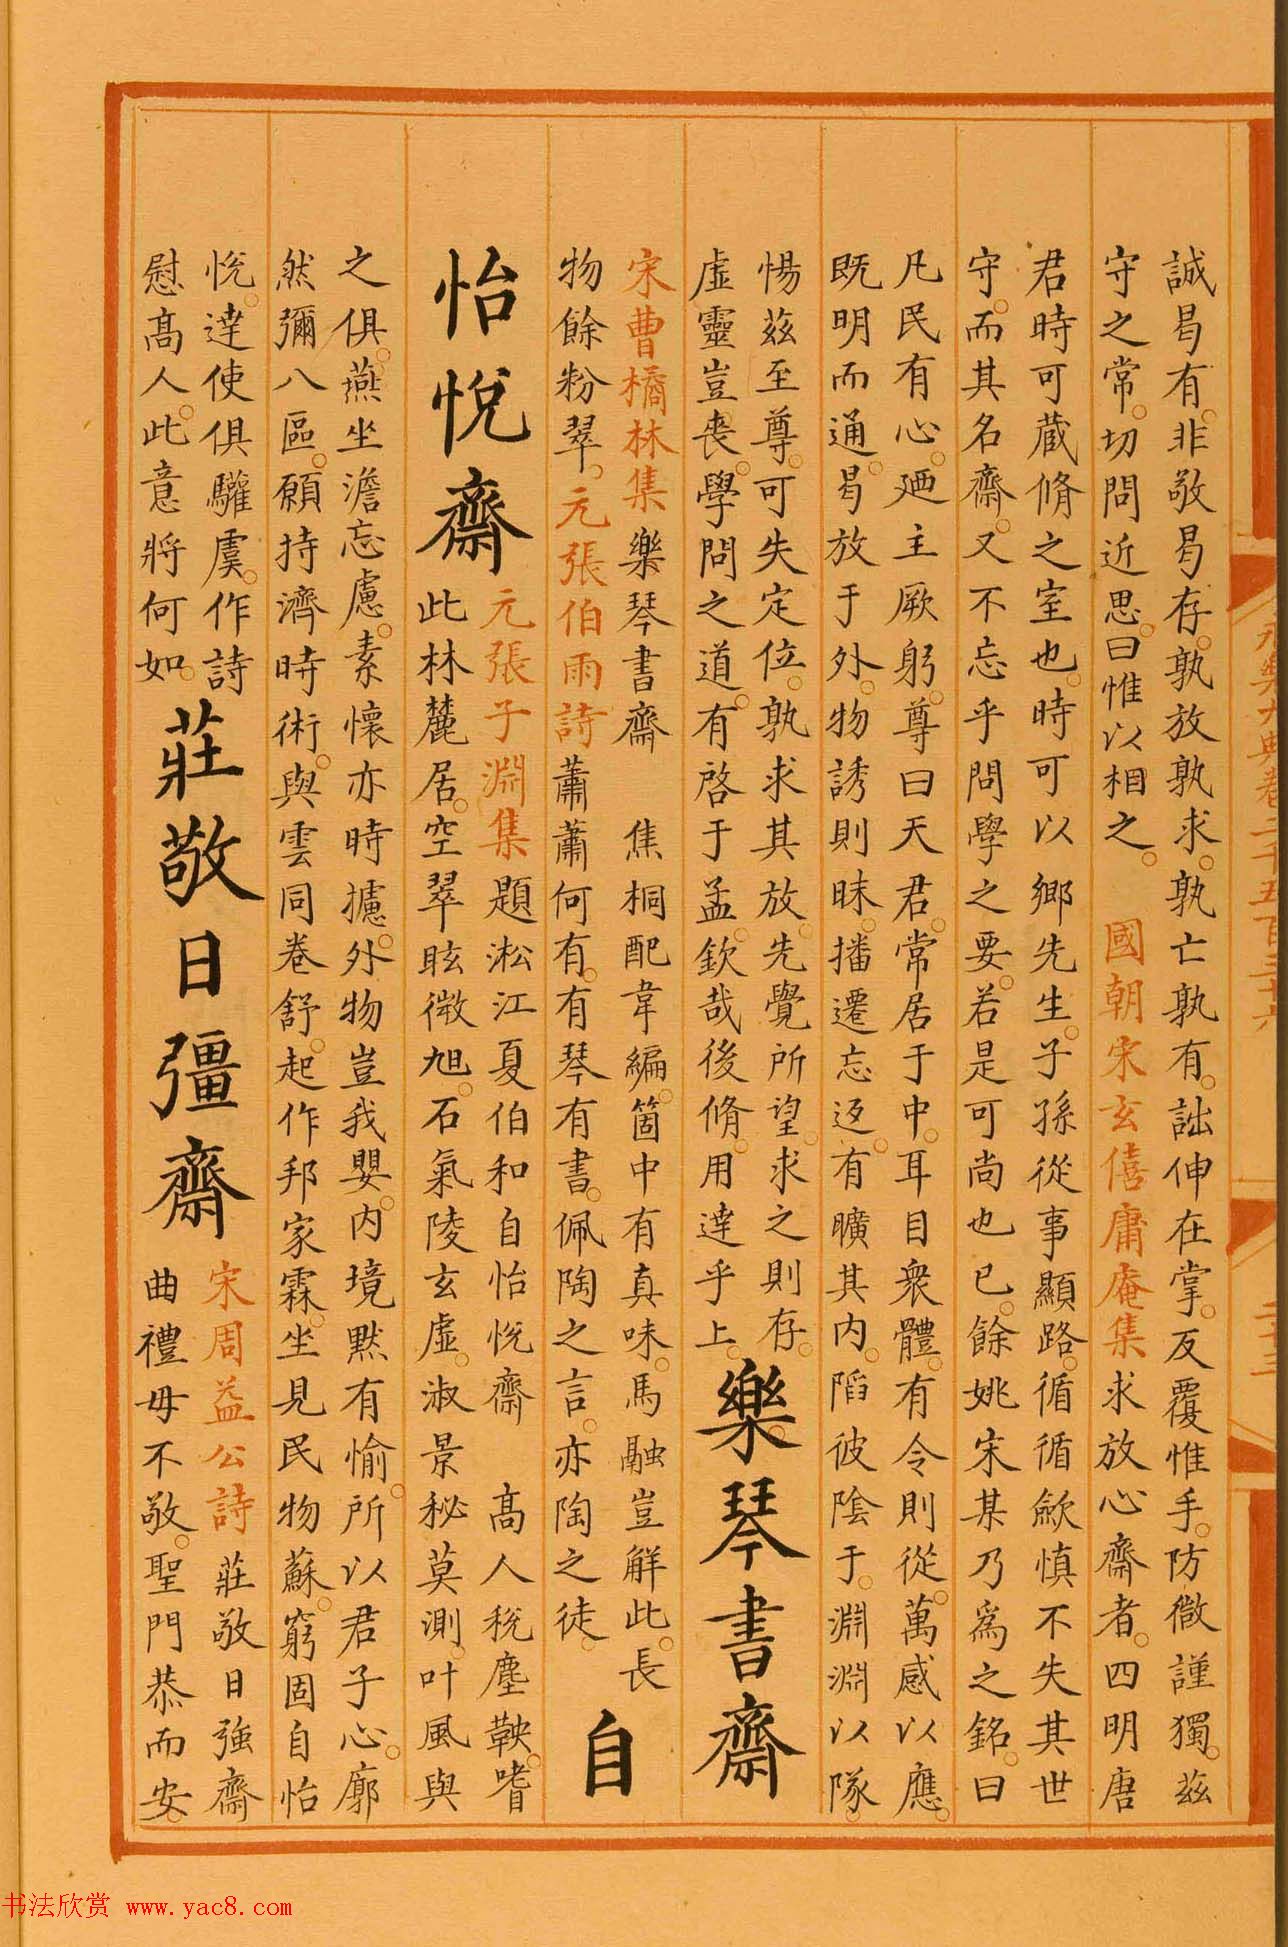 永樂大典卷二千五百三十六
二十三
誠曷有非敬曷存孰放孰求孰亡孰有詘伸在掌反覆惟手防微謹獨茲
守之常切問近思曰惟以相之 國朝宋玄僖庸庵集求放心齋者四明唐
君時可蔵脩之室也時可以鄉先生子孫從事顯路循循歛慎不失其世
守而其名齋又不忘乎問學之要若是可尚也已餘姚宋某乃爲之銘曰
凡民有心廼主厥躬尊曰天君常居于中耳目衆體有令則從萬感以應
既明而通曷放于外物誘則昧播遷忘返有曠其内陷彼陰于淵淵以隊
惕茲至尊可失定位孰求其放先覺所望求之則存
虛靈豈喪學問之道有啓于孟欽哉後脩用達乎上
樂琴書齋
宋曹橘林集樂琴書齋 焦桐配韋編箇中有真味馬融豈解此長
物餘粉翠元張伯雨詩蕭蕭何有有琴有書佩陶之言亦陶之徒
自
怡悅齋
元張子淵集題淞江夏伯和自怡悅齋 高人稅塵鞅嗜
此林麓居空翠眩微旭石氣陵玄虛淑景秘莫測叶風與
之俱燕坐澹忘慮素懷亦時攄外物豈我嬰内境默有愉所以君子心廓
然彌八區願持濟時術與雲同卷舒起作邦家霖坐見民物蘇窮固自怡
悅達使俱驩虞作詩
慰高人此意將何如
莊敬日彊齋
宋周益公詩莊敬日強齋
曲禮毋不敬聖門恭而安
书法欣赏 www.yac8.com